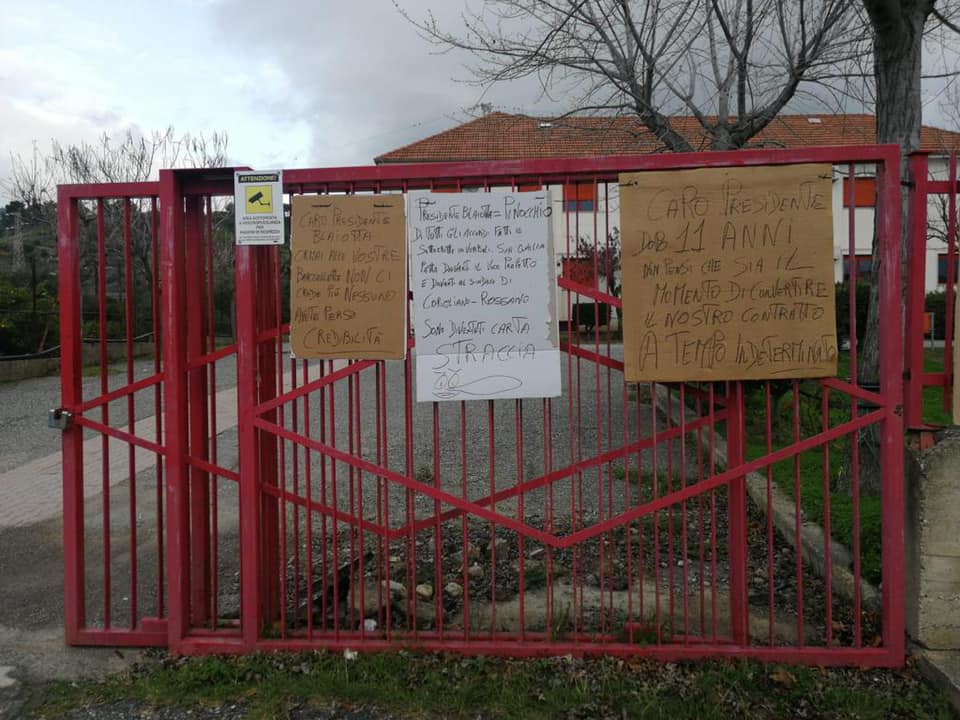 ATTENZIONE!
AREA SOTTOPOSTA
A VIDEOSORVEGLIANZA
PER
MOTIVI DI SICUREZZA
CARO PRESIDENTE
BLAIOTTA
ORMAI ALLE VOSTRE
BARZELLETTE NON CI
CREDE PIÙ NESSUNO
AVETE PERSO
CREDIBILITÀ
PRESIDENTE BLAIOTTA = PINOCCHIO
DI TUTTI GLI ACCORDI FATTI E
SOTTOSCRITTI IN VERBALI. SIA QUELLA
FATTA DAVANTI IL VICE PREFETTO
E DAVANTI AL SINDACO DI
COROLIANO-ROSSANO
SONO DIVENTATI CARTA
STRACCIA
CARO PRESIDENTE
DOPO 11 ANNI
NON PENSI CHE SIA IL
MOMENTO DI CONVERTIRE
IL NOSTRO CONTRATTO
A TEMPO INDETERMINATO